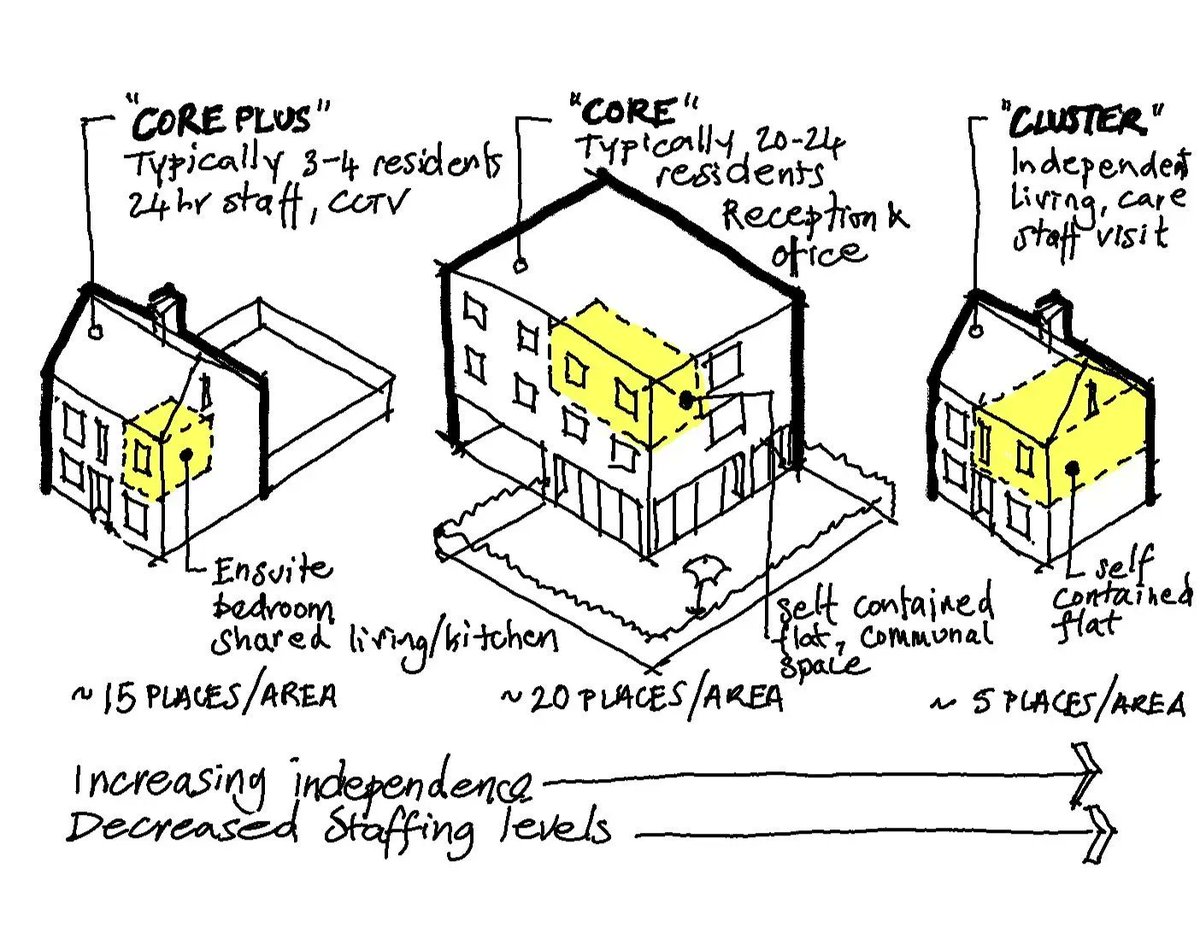 "CORE PLUS"
Typically 3-4 residents
24hr staff, CCTV
"CORE"
Typically 20-24
residents
Reception &
ofice
"CLUSTER"
Independent
living, care
staff visit
Ensuite
bedroom
shared living/kitchen
self contained
flat, communal
space
self
contained
flat
~ 15 PLACES/AREA
~ 20 PLACES/AREA
~ 5 PLACES/AREA
Increasing independence
Decreased Staffing levels